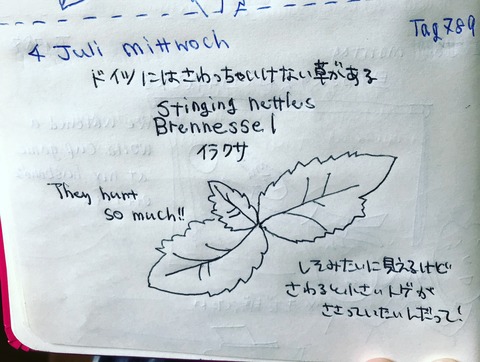 Tag 789
4 Juli mittwoch
ドイツにはさわっちゃいけない草がある
Stinging nettles
Brennessel
イラクサ
They hurt
so much!!
しそみたいに見えるけど
さわると小さいトゲが
ささっていたいんだって!